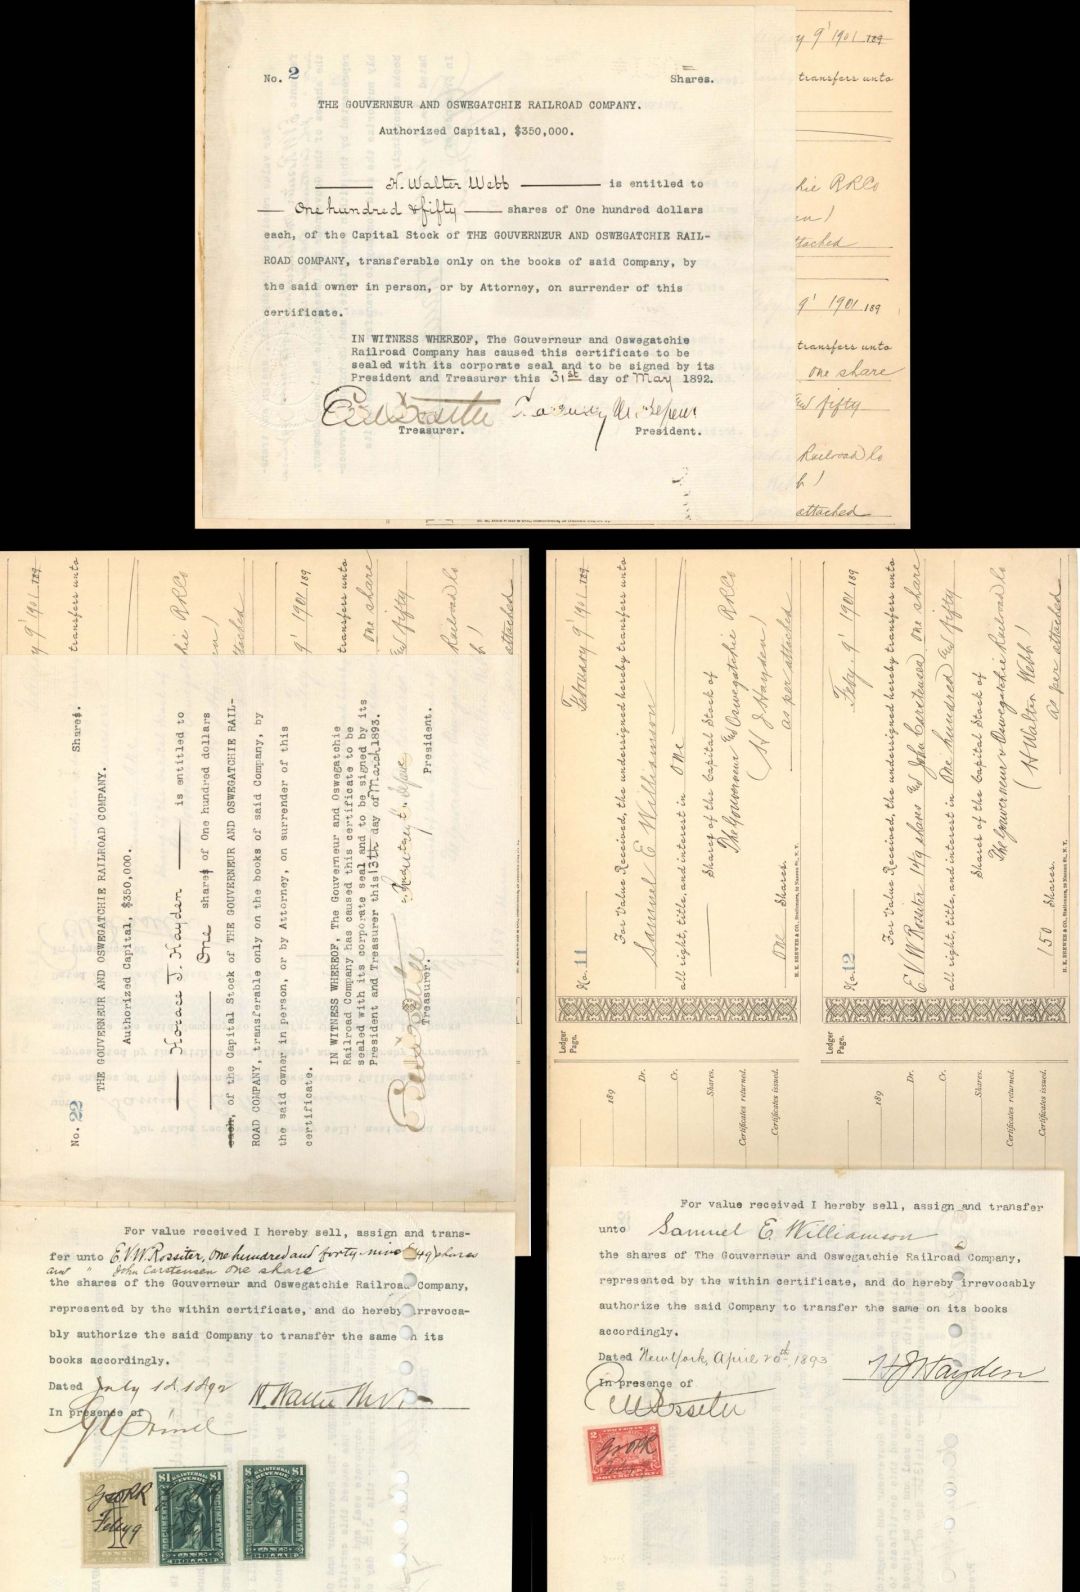 No. 2 Shares.
THE GOUVERNEUR AND OSWEGATCHIE RAILROAD COMPANY.
Authorized Capital, $350,000.
H. Walter Webb is entitled to
One hundred & fifty shares of One hundred dollars
each, of the Capital Stock of THE GOUVERNEUR AND OSWEGATCHIE RAIL-
ROAD COMPANY, transferable only on the books of said Company, by
the said owner in person, or by Attorney, on surrender of this
certificate.
IN WITNESS WHEREOF, The Gouverneur and Oswegatchie
Railroad Company has caused this certificate to be
sealed with its corporate seal and to be signed by its
President and Treasurer this 31st day of May 1892.
Treasurer. President.
y 9' 1901 189
transfers unto
hie RRCo
en)
ttached
9' 1901 189
transfers unto
one share
fifty
Railroad Co
b)
attached
y 9' 1901 189
transfers unto
hie RRCo
en)
ttached
9' 1901 189
transfers unto
one share
fifty
Railroad Co
b)
attached
No. 22 Shares.
THE GOUVERNEUR AND OSWEGATCHIE RAILROAD COMPANY.
Authorized Capital, $350,000.
Horace J. Hayden is entitled to
One shares of One hundred dollars
each, of the Capital Stock of THE GOUVERNEUR AND OSWEGATCHIE RAIL-
ROAD COMPANY, transferable only on the books of said Company, by
the said owner in person, or by Attorney, on surrender of this
certificate.
IN WITNESS WHEREOF, The Gouverneur and Oswegatchie
Railroad Company has caused this certificate to be
sealed with its corporate seal and to be signed by its
President and Treasurer this 13th day of March 1893.
Treasurer. President.
For value received I hereby sell, assign and trans-
fer unto E.V.W. Rossiter, one hundred and forty nine (149) shares
and " John Carstensen one share
the shares of the Gouverneur and Oswegatchie Railroad Company,
represented by the within certificate, and do hereby irrevoca-
bly authorize the said Company to transfer the same on its
books accordingly.
Dated July 1st 1892
In presence of
$1 $1
$1 U.S. INTERNAL REVENUE $1
DOCUMENTARY
ONE DOLLAR
$1 U.S. INTERNAL REVENUE $1
DOCUMENTARY
ONE DOLLAR
G&ORR
Feby 9
February 9' 1901 189
No. 11 For Value Received, the undersigned hereby transfers unto
Samuel E Williamson
all right, title, and interest in one
Shares of the Capital Stock of
The Gouverneur & Oswegatchie RRCo
(H J Hayden)
One Shares. as per attached
Feby. 9' 1901 189
No. 12 For Value Received, the undersigned hereby transfers unto
E.V.W Rossiter 149 shares & John Carstensen one share
all right, title, and interest in One hundred & fifty
Shares of the Capital Stock of
The Gouverneur & Oswegatchie Railroad Co
(H Walter Webb)
150 Shares. as per attached
Ledger Page.
189
Dr.
Cr.
Shares.
Certificates returned.
Certificates issued.
Ledger Page.
189
Dr.
Cr.
Shares.
Certificates returned.
Certificates issued.
For value received I hereby sell, assign and transfer
unto Samuel E Williamson
the shares of The Gouverneur and Oswegatchie Railroad Company,
represented by the within certificate, and do hereby irrevocably
authorize the said Company to transfer the same on its books
accordingly.
Dated New York, April 20th 1893 H J Hayden
In presence of
E V W Rossiter
2 2
G&ORR